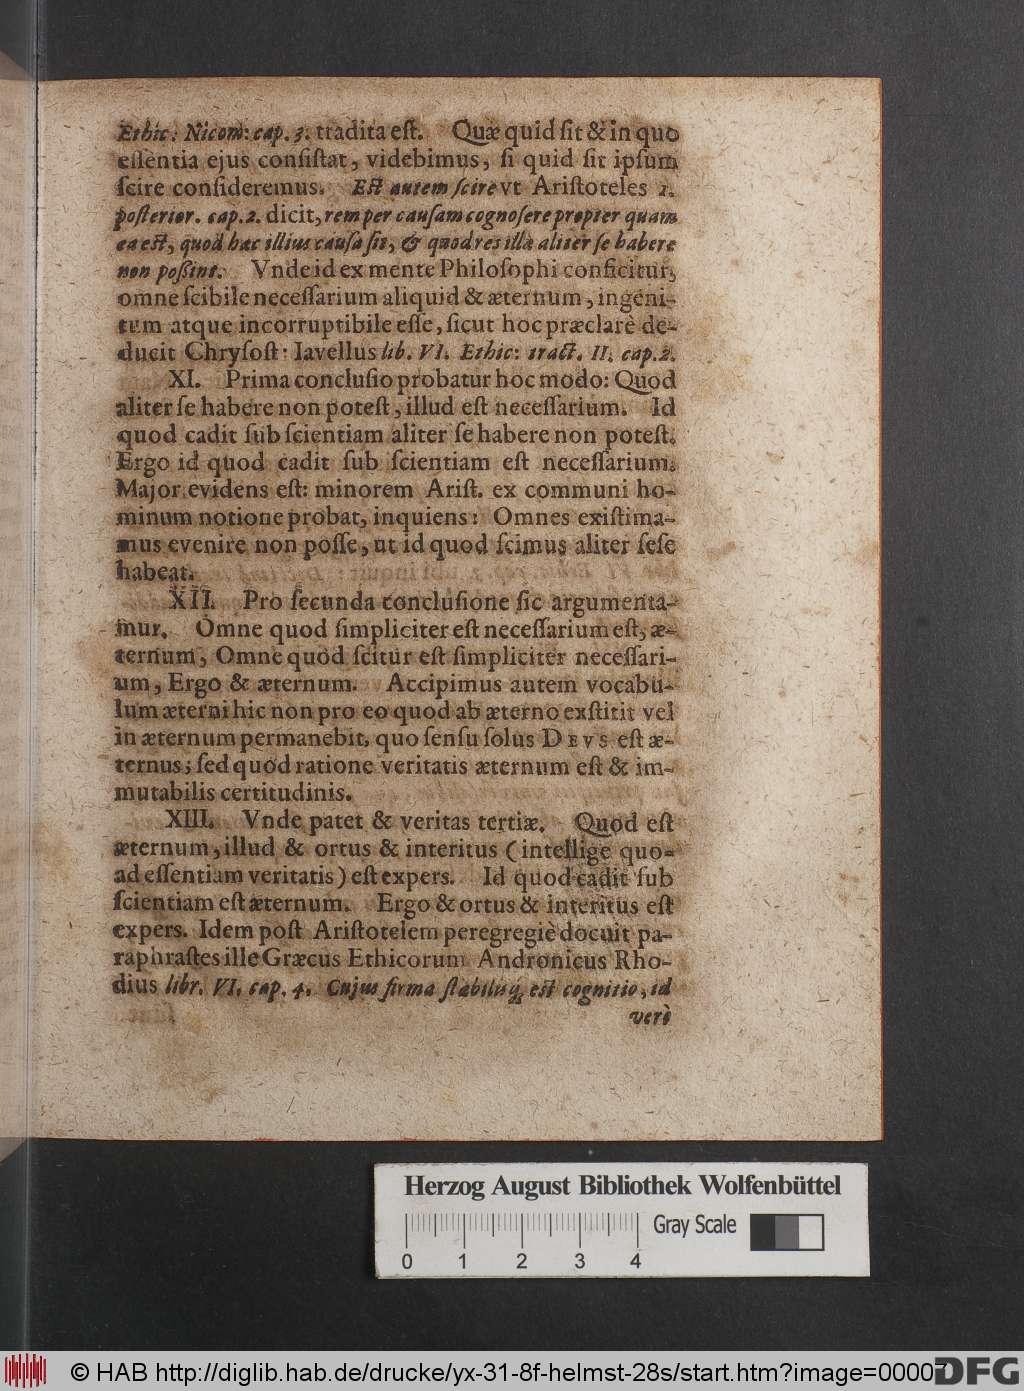 Ethic: Nicom: cap. 3. tradita eſt. Quæ quid ſit & in quo
eſſentia ejus conſiſtat, videbimus, ſi quid ſit ipſum
ſcire conſideremus. Eſt autem ſcire vt Ariſtoteles 1.
poſterior. cap. 2. dicit, rem per cauſam cognoſere propter quam
ea eſt, quod hæc illius cauſa ſit, & quod res illa aliter ſe habere
non poſſint. Vnde id ex mente Philoſophi conficitur,
omne ſcibile neceſſarium aliquid & æternum, ingeni-
tum atque incorruptibile eſſe, ſicut hoc præclarè de-
ducit Chryſoſt: Iavellus lib. VI. Ethic: tract. II. cap. 2.
XI. Prima concluſio probatur hoc modo: Quod
aliter ſe habere non poteſt, illud eſt neceſſarium. Id
quod cadit ſub ſcientiam aliter ſe habere non poteſt.
Ergo id quod cadit ſub ſcientiam eſt neceſſarium.
Major evidens eſt: minorem Ariſt. ex communi ho-
minum notione probat, inquiens: Omnes exiſtima-
mus evenire non poſſe, ut id quod ſcimus aliter ſeſe
habeat.
XII. Pro ſecunda concluſione ſic argumenta-
mur. Omne quod ſimpliciter eſt neceſſarium eſt, æ-
ternum, Omne quod ſcitur eſt ſimpliciter neceſſari-
um, Ergo & æternum. Accipimus autem vocabu-
lum æterni hic non pro eo quod ab æterno exſtitit vel
in æternum permanebit, quo ſenſu ſolus DEVS eſt æ-
ternus; ſed quod ratione veritatis æternum eſt & im-
mutabilis certitudinis.
XIII. Vnde patet & veritas tertiæ. Quod eſt
æternum, illud & ortus & interitus (intellige quo-
ad eſſentiam veritatis) eſt expers. Id quod cadit ſub
ſcientiam eſt æternum. Ergo & ortus & interitus eſt
expers. Idem poſt Ariſtotelem peregregiè docuit pa-
raphraſtes ille Græcus Ethicorum Andronicus Rho-
dius libr. VI. cap. 4. Cujus firma ſtabilisq́; eſt cognitio, id
verò
Herzog August Bibliothek Wolfenbüttel
Gray Scale
0 1 2 3 4
© HAB http://diglib.hab.de/drucke/yx-31-8f-helmst-28s/start.htm?image=00007
DFG